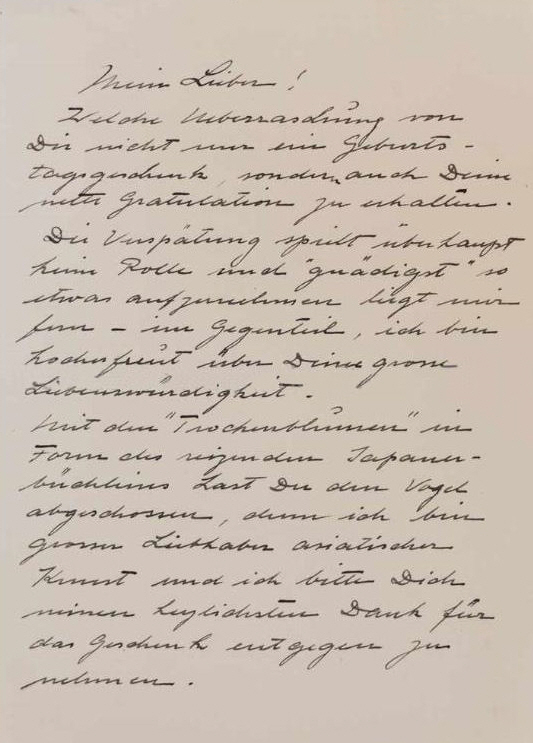 Mein Lieber!
Welche Ueberraschung von
Dir nicht nur ein Geburts-
tagsgeschenk, sondern auch Deine
nette Gratulation zu erhalten.
Die Verspätung spielt überhaupt
keine Rolle und "gnädigst" so
etwas aufzunehmen liegt mir
fern - im Gegenteil, ich bin
hocherfreut über Deine grosse
Liebenswürdigkeit.
Mit den "Trockenblumen" in
Form des reizenden Japaner-
büchleins hast Du den Vogel
abgeschossen, denn ich bin
grosser Liebhaber asiatischer
Kunst und ich bitte Dich
meinen herzlichsten Dank für
das Geschenk entgegen zu
nehmen.